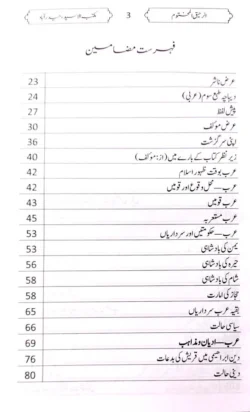 الرحیق المختوم
3
فہرست مضامین
عرض ناشر 23
دیباچہ طبع سوم (عربی) 24
پیش لفظ 27
عرض مؤلف 30
اپنی سرگزشت 36
زیر نظر کتاب کے بارے میں (از: مؤلف) 40
عرب بوقت ظہور اسلام 42
عرب – محل وقوع اور قومیں 42
عرب قومیں 43
عرب مستعربہ 45
عرب – حکومتیں اور سرداریاں 53
یمن کی بادشاہی 53
حیرہ کی بادشاہی 56
شام کی بادشاہی 58
حجاز کی امارت 58
بقیہ عرب سرداریاں 65
سیاسی حالت 66
عرب – ادیان و مذاہب 69
دین ابراہیمی میں قریش کی بدعات 76
دینی حالت 80